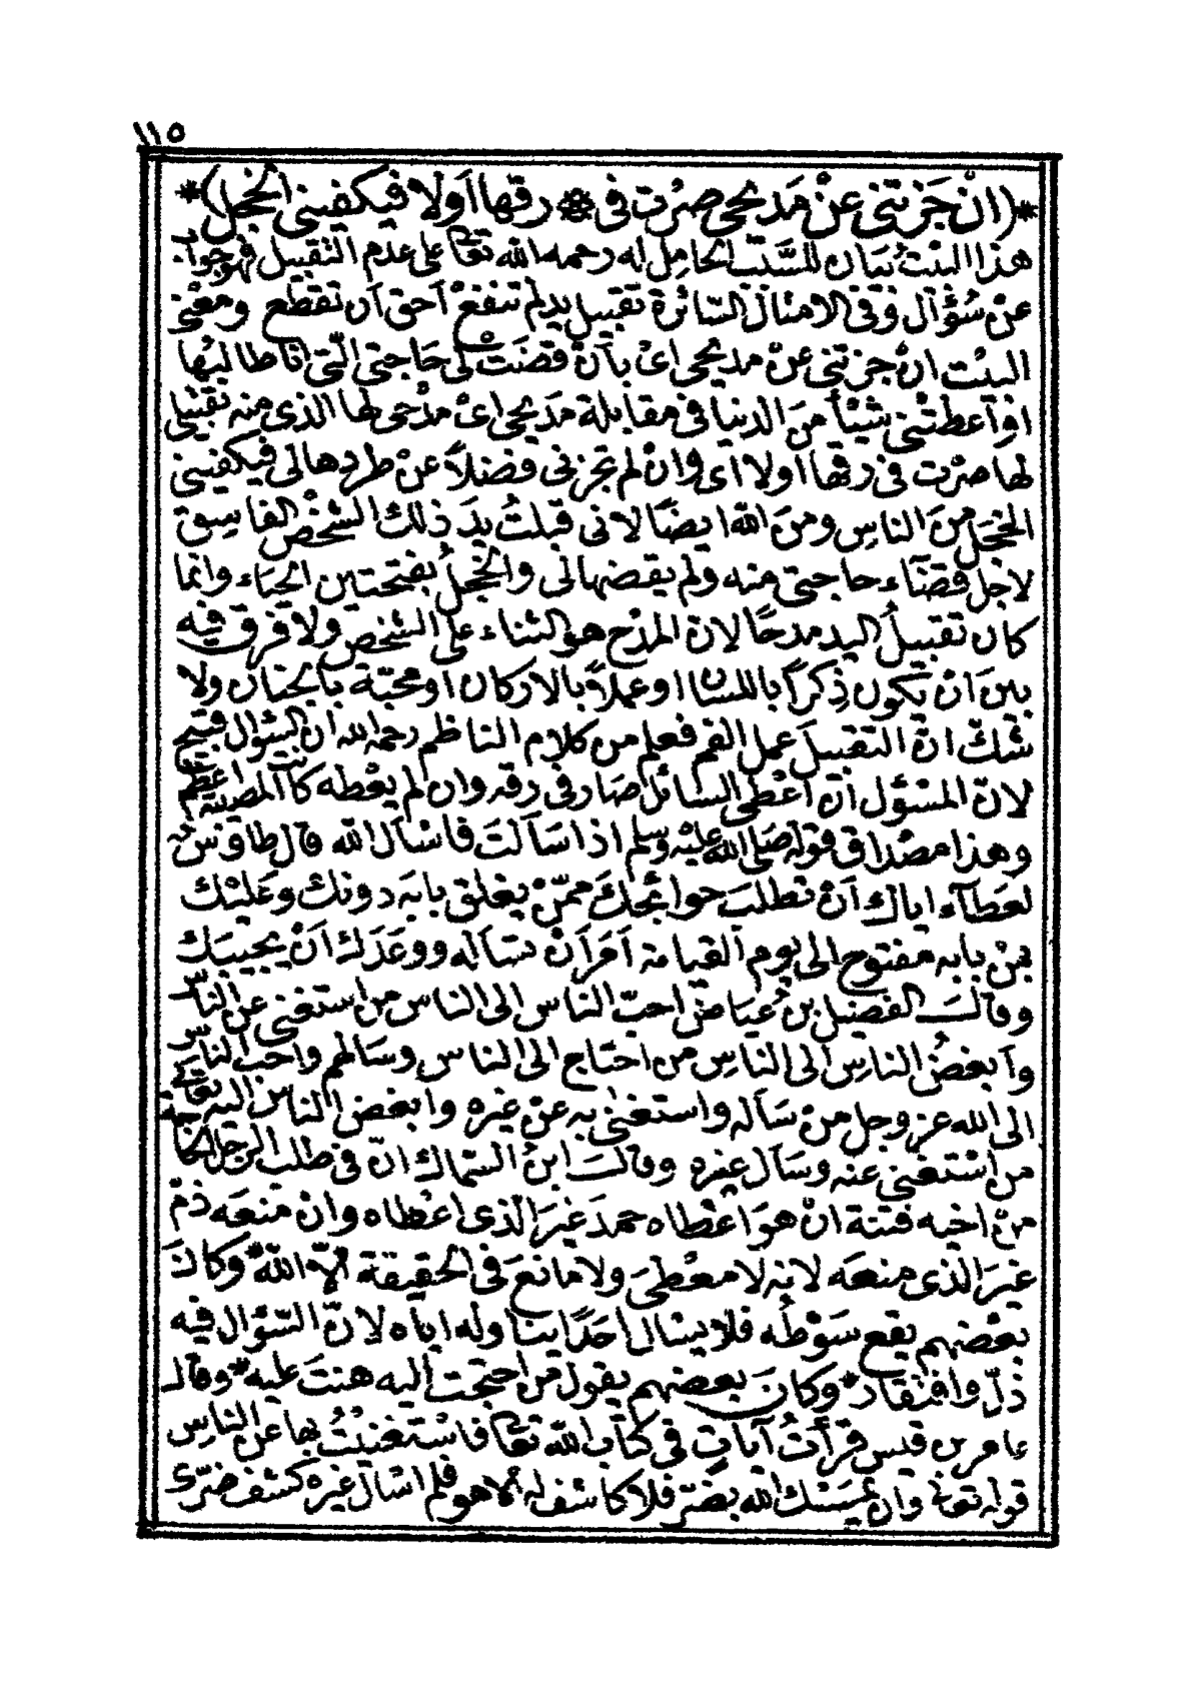 ١١٥
*(انْ جَزتنى عَنْ مَديحى صرْت فى * رقها اَولا فيكفينى الخجل)*
هذا البيْت بيَان للسَّبب الحامِل له رحمه الله تعا على عدم التقبيل فهو جواب
عنْ سُؤال وفى الامثال السّائرة تقبيل يد لم تنفعْ اَحق اَن تقطع ومعْنى
البيْت انْ جزتنى عنْ مديحى اىْ بأنْ قضَتْ لى حَاجتى الّتى انا طالبُها
اواَعطتْنى شيْأً منَ الدنيا فى مقابلة مَديحى اىْ مدْحى لها الذى منه تقبيلى
لها صرْت فى رقها اولا اى وانْ لم تجزنى فضلاً عنْ طردها لى فيكفينى
الخجل منَ الناسِ ومنَ الله ايضًا لانى قبلتُ يدَ ذلك الشخْص الفاسِق
لاجل قضَآء حاجتى منه ولم يقضها لى والخجلُ بفتحتين الحيَاء وانما
كان تقبيلُ اليد مدحًا لان المدْح هو الثناء على الشخص ولا فرق فيه
بينَ انْ يكون ذِكراً باللسان اوعملاً بالاركان اومحبّة بالجنان ولا
شكّ انّ التقبيلَ عمل الفم فعلم من كلام الناظم رحمه الله ان السؤال قبيح
لانّ المسْؤل انْ اعْطى السائل صَار فى رقه وان لم يعْطه كانت المصيبة اعظم
وهذا مصْداق قوله صَلى الله عليْه وسلم اذا سَاَلتَ فاسْأل الله قال طاوس
لعَطآء اياك اَنْ تطلبَ حوائجكَ ممّنْ يغلق بابَه دونك وعَليْك
بمنْ بابه مفتوح الى يوم القيامة اَمَر اَنْ تسَأله ووعَدَك اَنْ يجيبَك
وقالَ الفضيل بن عيَاض احبّ الناس الى الناس من استغنى عن الناس
واَبغضُ الناسِ الى الناسِ من احْتاج الى الناس وسَالهم واحب الناس
الى الله عز وجل منْ سَاَله واستغنى به عنْ غيره وابغض الناس اليه تعالى
من اسْتغنى عنه وسَاَل غيره وقالَ ابنُ السّماك انّ فى طلب الرجل الحاجة
منْ اخيه فتنة انْ هوَ اعْطاه حمدَ غيَر الذى اعْطاه وانْ منعَه ذمْ
غيَر الذى منعَه لانه لا معْطىَ ولا مانعَ فى الحقيقة الاّ اللهُ وكانَ
بعْضهم يقع سَوْطُه فلا يسْال اَحَدًا يناوله اياه لانّ السّؤال فيه
ذلّ وافتقار وكانَ بعضهم يقول من احتجت اليه هنتَ عليه وقال
عامر بن قيس قرأتُ آيات فى كتاب الله تعا فاسْتغنيْتُ بها عن الناس
قوله تعا وان يمسَسْك الله بضر فلا كاشف له الا هو فلم اسْال غيره كشف ضرّى